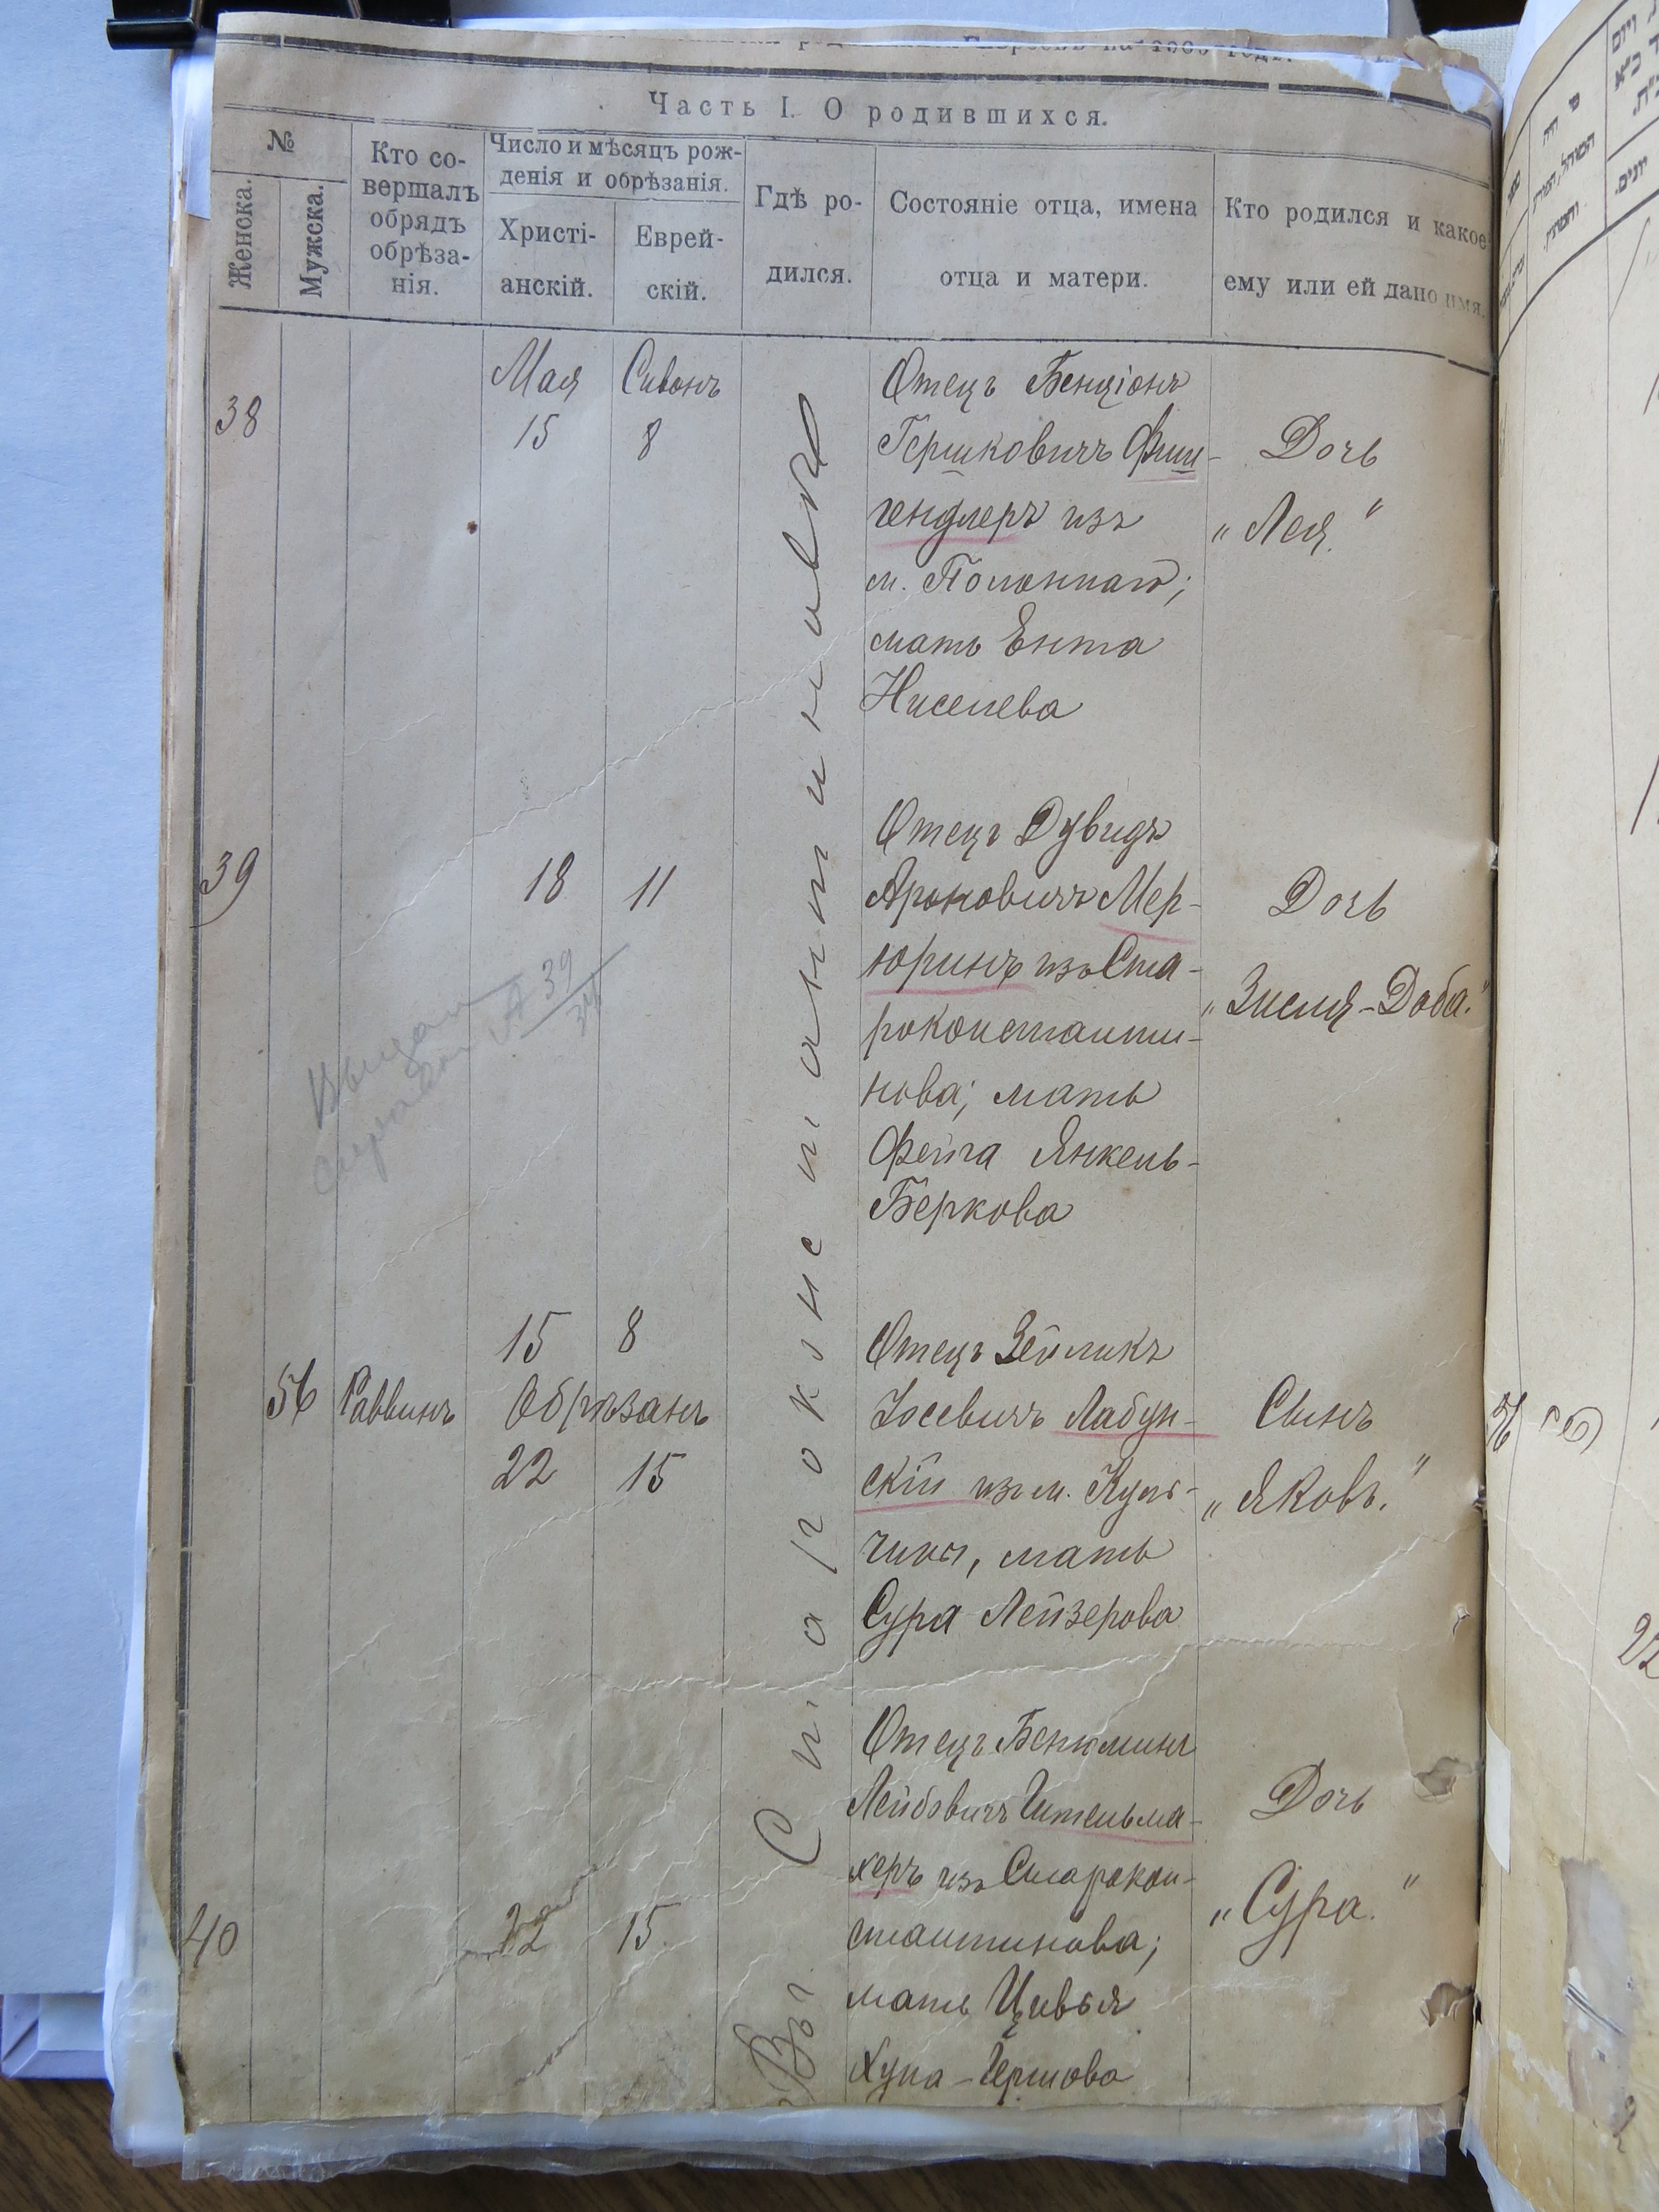 Часть I. О родившихся.
№
Женска.
Мужска.
Кто со-
вершалъ
обрядъ
обрѣза-
нія.
Число и мѣсяцъ рож-
денія и обрѣзанія.
Христі-
анскій.
Еврей-
скій.
Гдѣ ро-
дился.
Состояніе отца, имена
отца и матери.
Кто родился и какое
ему или ей дано имя.
Въ Староконстантиновѣ
38
Мая
15
Сивонъ
8
Отецъ Бенціонъ
Гершковичъ Фиш-
гендлеръ изъ
м. Полоннаго;
мать Ента
Ниселева
Дочь
„Лея."
39
18
11
Отецъ Дувидъ
Ароновичъ Мер-
юринъ изъ Ста-
роконстанти-
нова; мать
Фейга Янкель-
Беркова
Дочь
„Зисля-Доба."
39
56
Раввинъ
15
8
Обрѣзанъ
22
15
Отецъ Зейликъ
Іосевичъ Лабун-
скій изъ м. Куль-
чина, мать
Сура Лейзерова
Сынъ
„Яковъ."
40
22
15
Отецъ Бенюминъ
Лейбовичъ Штельма-
херъ изъ Старокон-
стантинова;
мать Цивья
Хуна-Гершова
Дочь
„Сура."